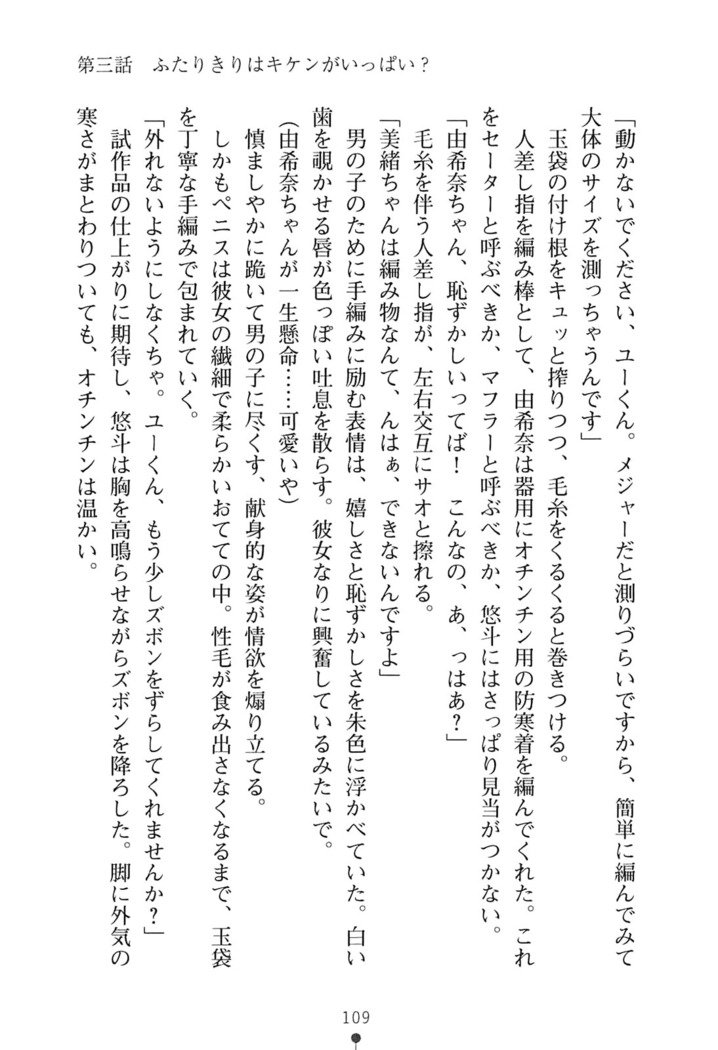 第三話　ふたりきりはキケンがいっぱい？
「動かないでください、ユーくん。メジャーだと測りづらいですから、簡単に編んでみて
大体のサイズを測っちゃうんです」
　玉袋の付け根をキュッと搾りつつ、毛糸をくるくると巻きつける。
　人差し指を編み棒として、由希奈は器用にオチンチン用の防寒着を編んでくれた。これ
をセーターと呼ぶべきか、マフラーと呼ぶべきか、悠斗にはさっぱり見当がつかない。
「由希奈ちゃん、恥ずかしいってば！　こんなの、あ、っはあ？」
　毛糸を伴う人差し指が、左右交互にサオと擦れる。
「美緒ちゃんは編み物なんて、んはぁ、できないんですよ」
　男の子のために手編みに励む表情は、嬉しさと恥ずかしさを朱色に浮かべていた。白い
歯を覗かせる唇が色っぽい吐息を散らす。彼女なりに興奮しているみたいで。
（由希奈ちゃんが一生懸命……可愛いや）
　慎ましやかに跪いて男の子に尽くす、献身的な姿が情欲を煽り立てる。
　しかもペニスは彼女の繊細で柔らかいおてての中。性毛が食み出さなくなるまで、玉袋
を丁寧な手編みで包まれていく。
「外れないようにしなくちゃ。ユーくん、もう少しズボンをずらしてくれませんか？」
　試作品の仕上がりに期待し、悠斗は胸を高鳴らせながらズボンを降ろした。脚に外気の
寒さがまとわりついても、オチンチンは温かい。
109